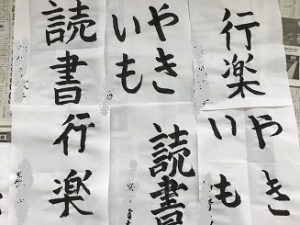 行楽
やき
いも
やき
いも
読書
読書
行楽